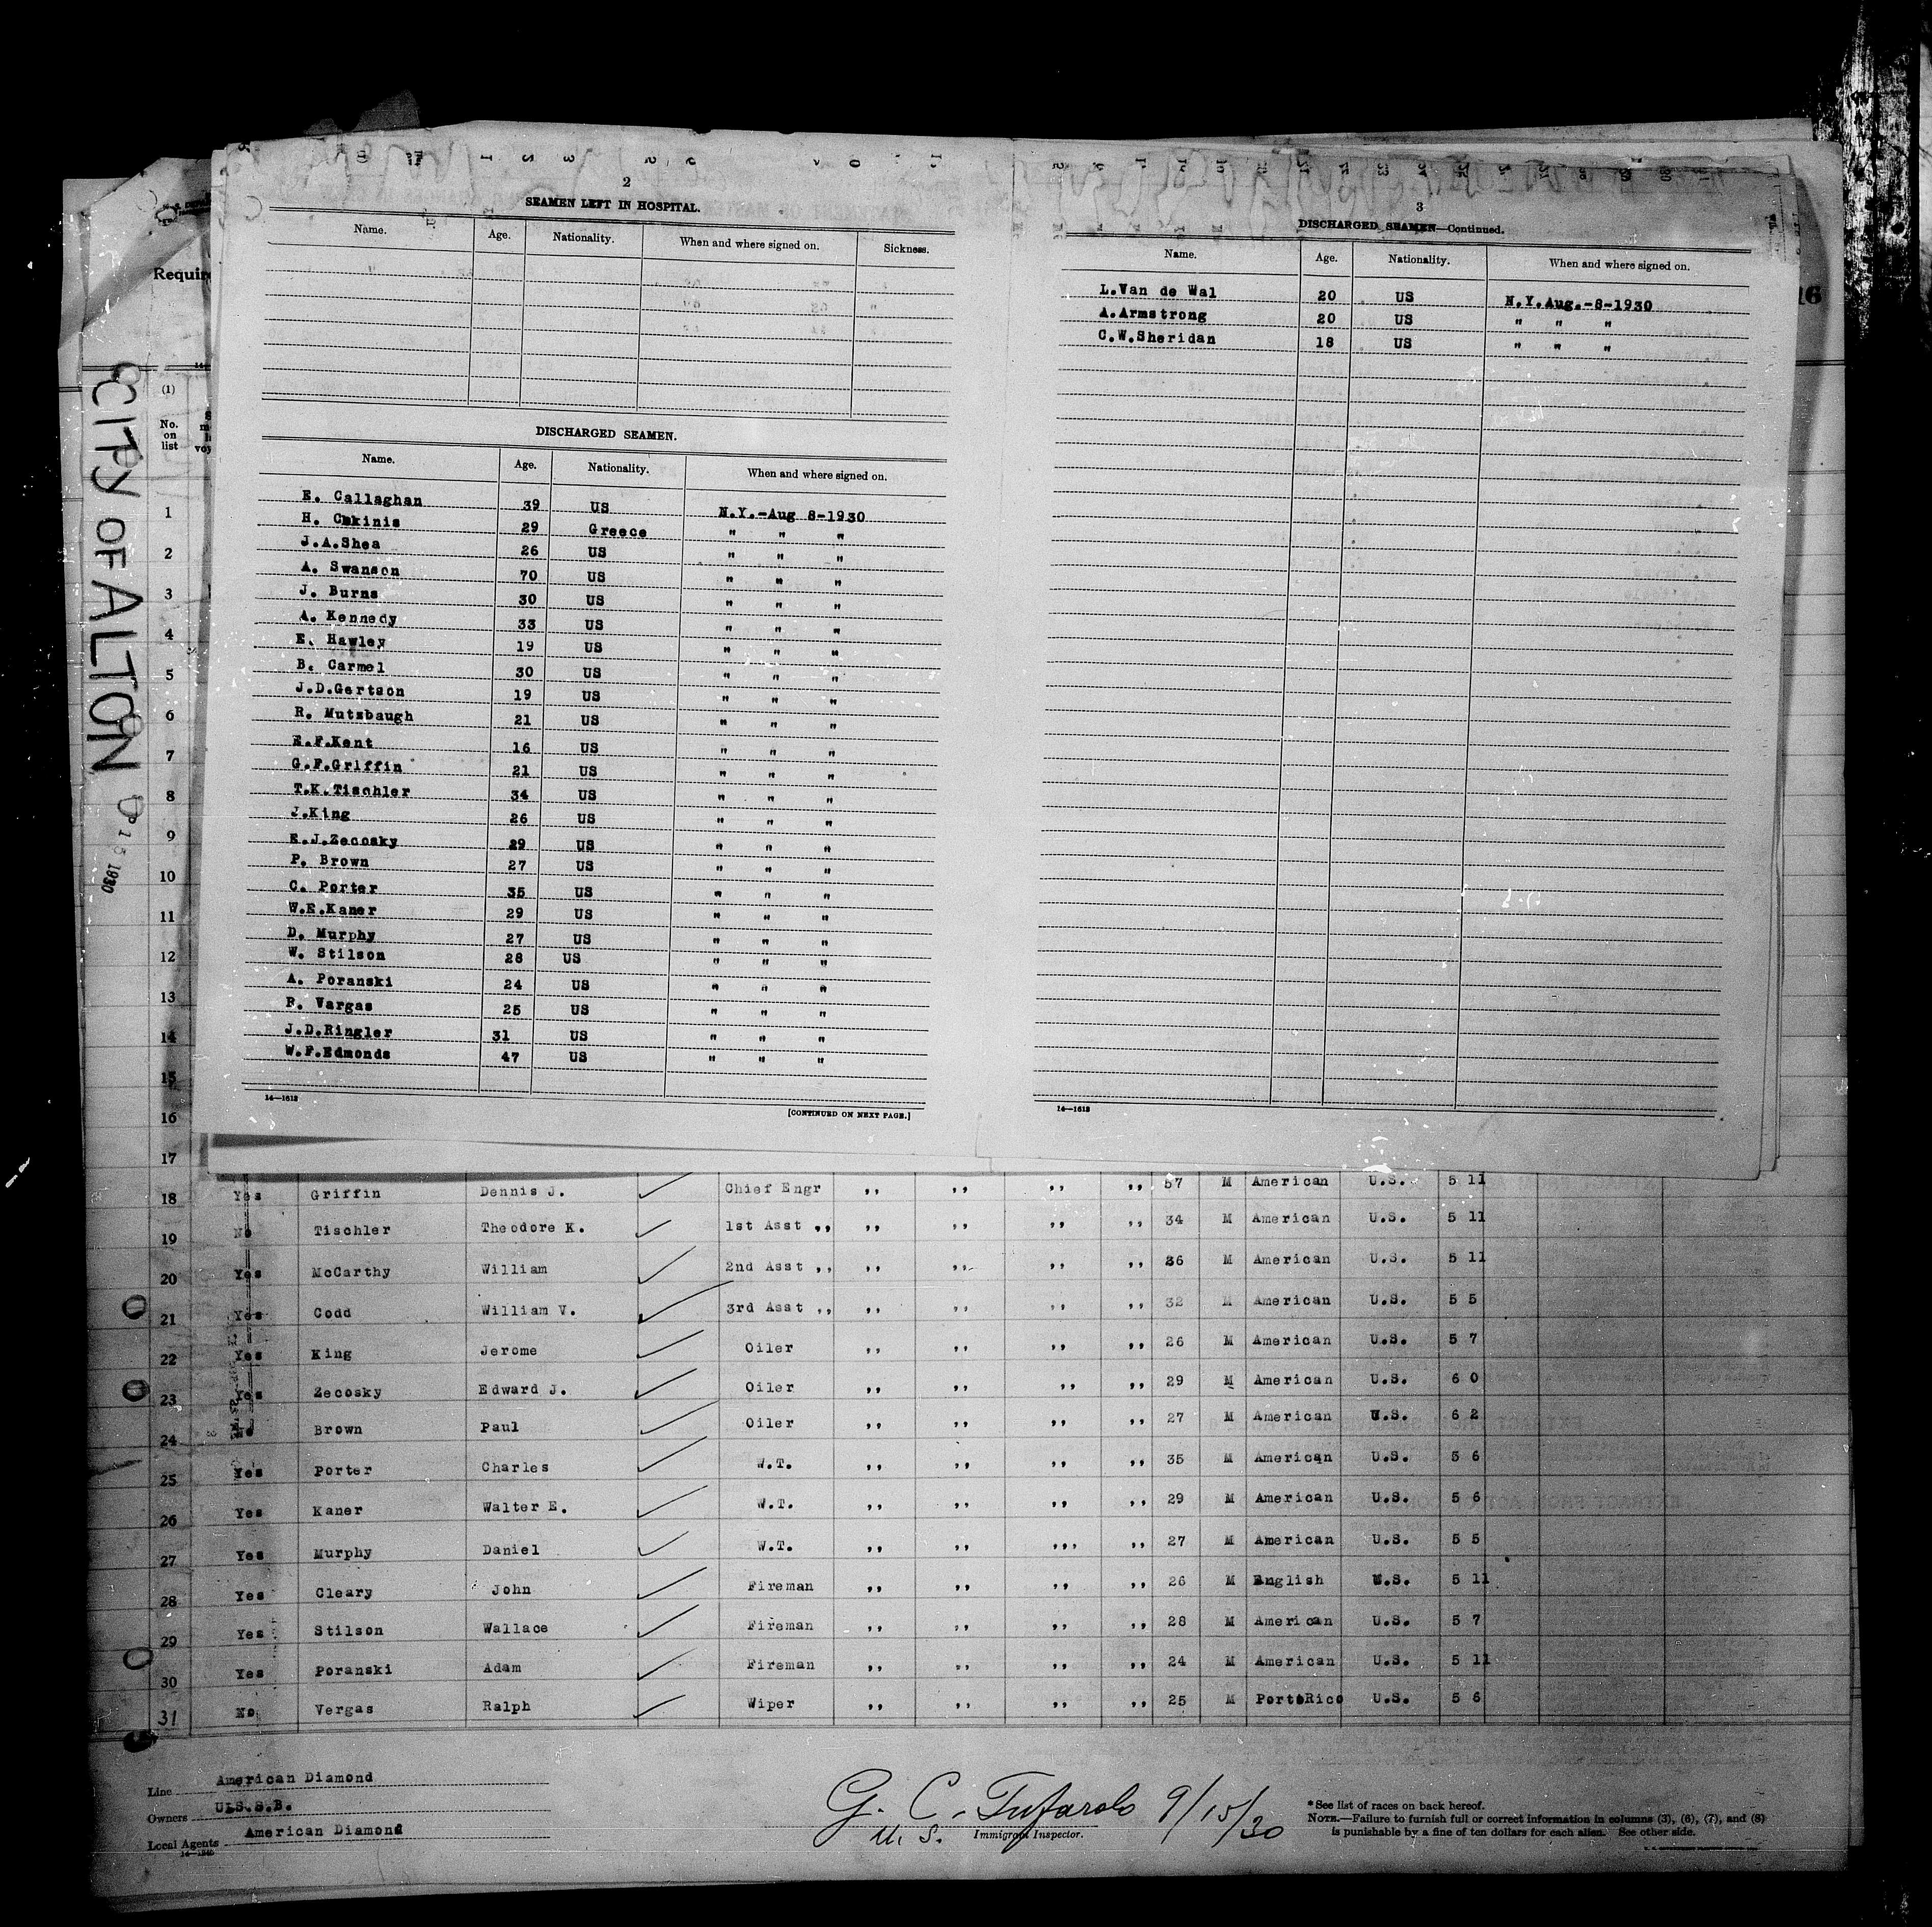 2
SEAMEN LEFT IN HOSPITAL.
Name. Age. Nationality. When and where signed on. Sickness.
DISCHARGED SEAMEN.
Name. Age. Nationality. When and where signed on.
E. Callaghan 39 US N.Y.-Aug 8-1930
H. Cmkinis 29 Greece " " "
J.A.Shea 26 US " " "
A. Swanson 70 US " " "
J. Burns 30 US " " "
A. Kennedy 33 US " " "
E. Hawley 19 US " " "
B. Carmel 30 US " " "
J.D.Gertson 19 US " " "
R. Mutsbaugh 21 US " " "
E.F.Kent 16 US " " "
G.F.Griffin 21 US " " "
T.K.Tischler 34 US " " "
J.King 26 US " " "
E.J.Zecosky 29 US " " "
P. Brown 27 US " " "
C. Porter 35 US " " "
W.E.Kaner 29 US " " "
D. Murphy 27 US " " "
W. Stilson 28 US " " "
A. Poranski 24 US " " "
R. Vargas 25 US " " "
J.D.Ringler 31 US " " "
W.F.Edmonds 47 US " " "
14—1613
[CONTINUED ON NEXT PAGE.]
3
DISCHARGED SEAMEN—Continued.
Name. Age. Nationality. When and where signed on.
L.Van de Wal 20 US N.Y.Aug.-8-1930
A.Armstrong 20 US " " "
C.W.Sheridan 18 US " " "
14—1613
CITY OF ALTON
1930
(1)
No. on list
1
2
3
4
5
6
7
8
9
10
11
12
13
14
15
16
17
18 Yes Griffin Dennis J. Chief Engr ,, ,, ,, ,, 57 M American U.S. 5 11
19 No Tischler Theodore K. 1st Asst ,, ,, ,, ,, ,, 34 M American U.S. 5 11
20 Yes McCarthy William 2nd Asst ,, ,, ,, ,, ,, 36 M American U.S. 5 11
21 Yes Codd William V. 3rd Asst ,, ,, ,, ,, ,, 32 M American U.S. 5 5
22 Yes King Jerome Oiler ,, ,, ,, ,, 26 M American U.S. 5 7
23 Yes Zecosky Edward J. Oiler ,, ,, ,, ,, 29 M American U.S. 6 0
24 No Brown Paul Oiler ,, ,, ,, ,, 27 M American U.S. 6 2
25 Yes Porter Charles W.T. ,, ,, ,, ,, 35 M American U.S. 5 6
26 Yes Kaner Walter E. W.T. ,, ,, ,, ,, 29 M American U.S. 5 6
27 Yes Murphy Daniel W.T. ,, ,, ,,, ,, 27 M American U.S. 5 5
28 Yes Cleary John Fireman ,, ,, ,, ,, 26 M English U.S. 5 11
29 Yes Stilson Wallace Fireman ,, ,, ,, ,, 28 M American U.S. 5 7
30 Yes Poranski Adam Fireman ,, ,, ,, ,, 24 M American U.S. 5 11
31 No Vergas Ralph Wiper ,, ,, ,, ,, 25 M PortoRico U.S. 5 6
Line American Diamond
Owners U.S.S.B.
Local Agents American Diamond
G. C. Tufarolo 9/15/30
U. S. Immigrant Inspector.
*See list of races on back hereof.
NOTE.—Failure to furnish full or correct information in columns (3), (6), (7), and (8)
is punishable by a fine of ten dollars for each alien. See other side.